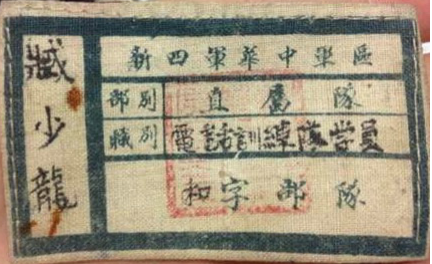 臧少龍
新四軍華中軍區
部別 直屬隊
職別 電話訓練隊学員
和字部隊